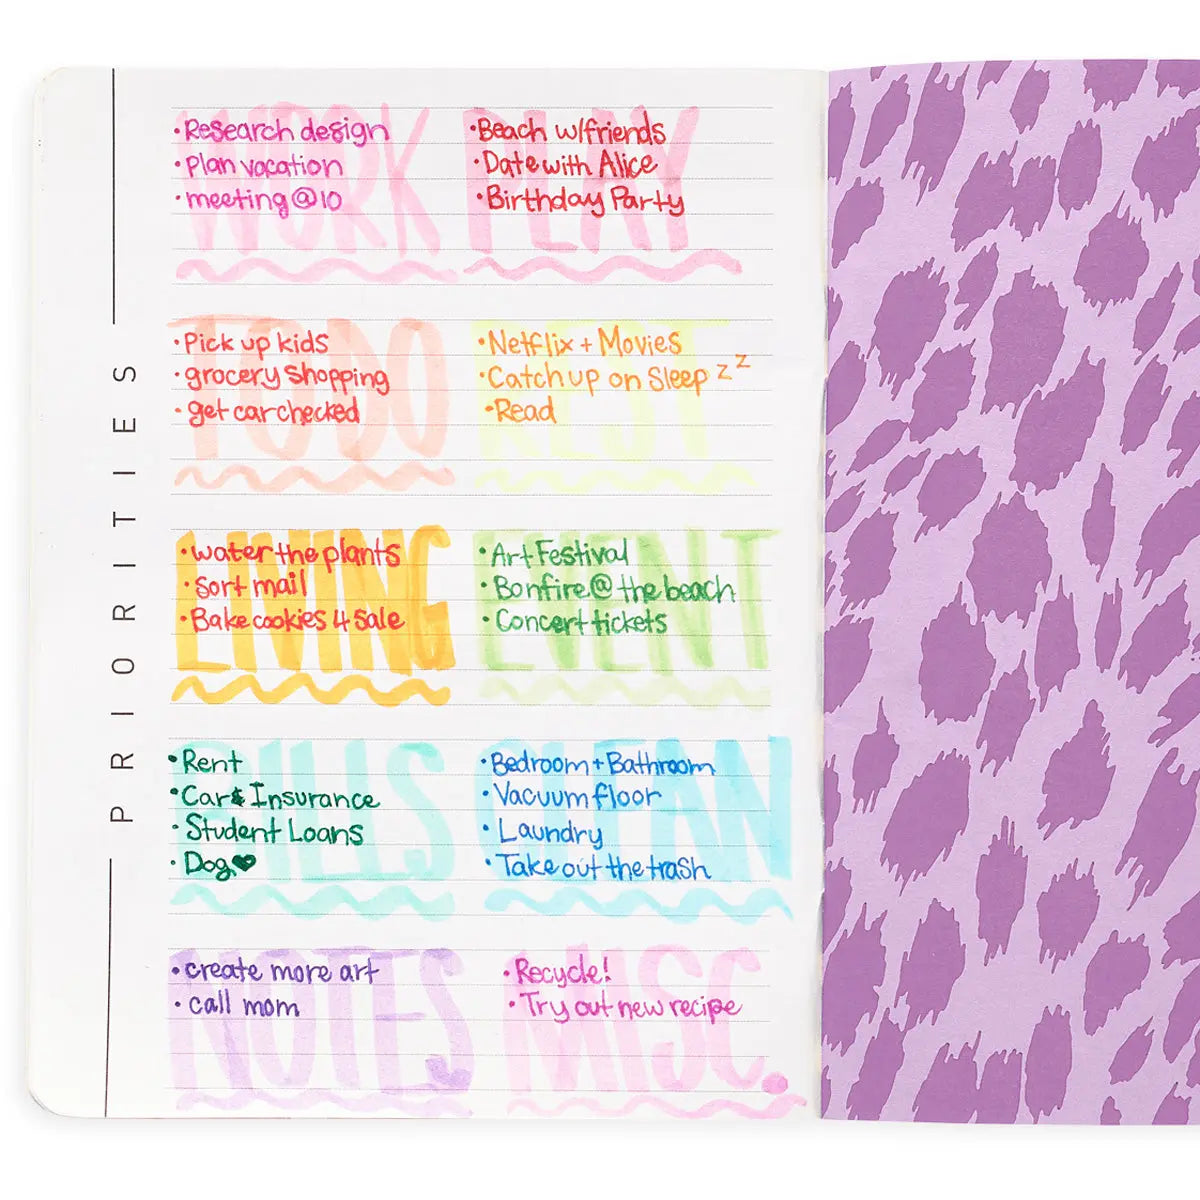 PRIORITIES
WORK
• Research design
• Plan vacation
• meeting @ 10
PLAY
• Beach w/friends
• Date with Alice
• Birthday Party
TO DO
• Pick up kids
• grocery shopping
• get car checked
REST
• Netflix + Movies
• Catch up on Sleep z z
• Read
LIVING
• water the plants
• Sort mail
• Bake cookies 4 sale
EVENT
• Art Festival
• Bonfire @ the beach
• Concert tickets
BILLS
• Rent
• Car & Insurance
• Student Loans
• Dog ♥
CLEAN
• Bedroom + Bathroom
• Vacuum floor
• Laundry
• Take out the trash
NOTES
• create more art
• call mom
MISC.
• Recycle!
• Try out new recipe